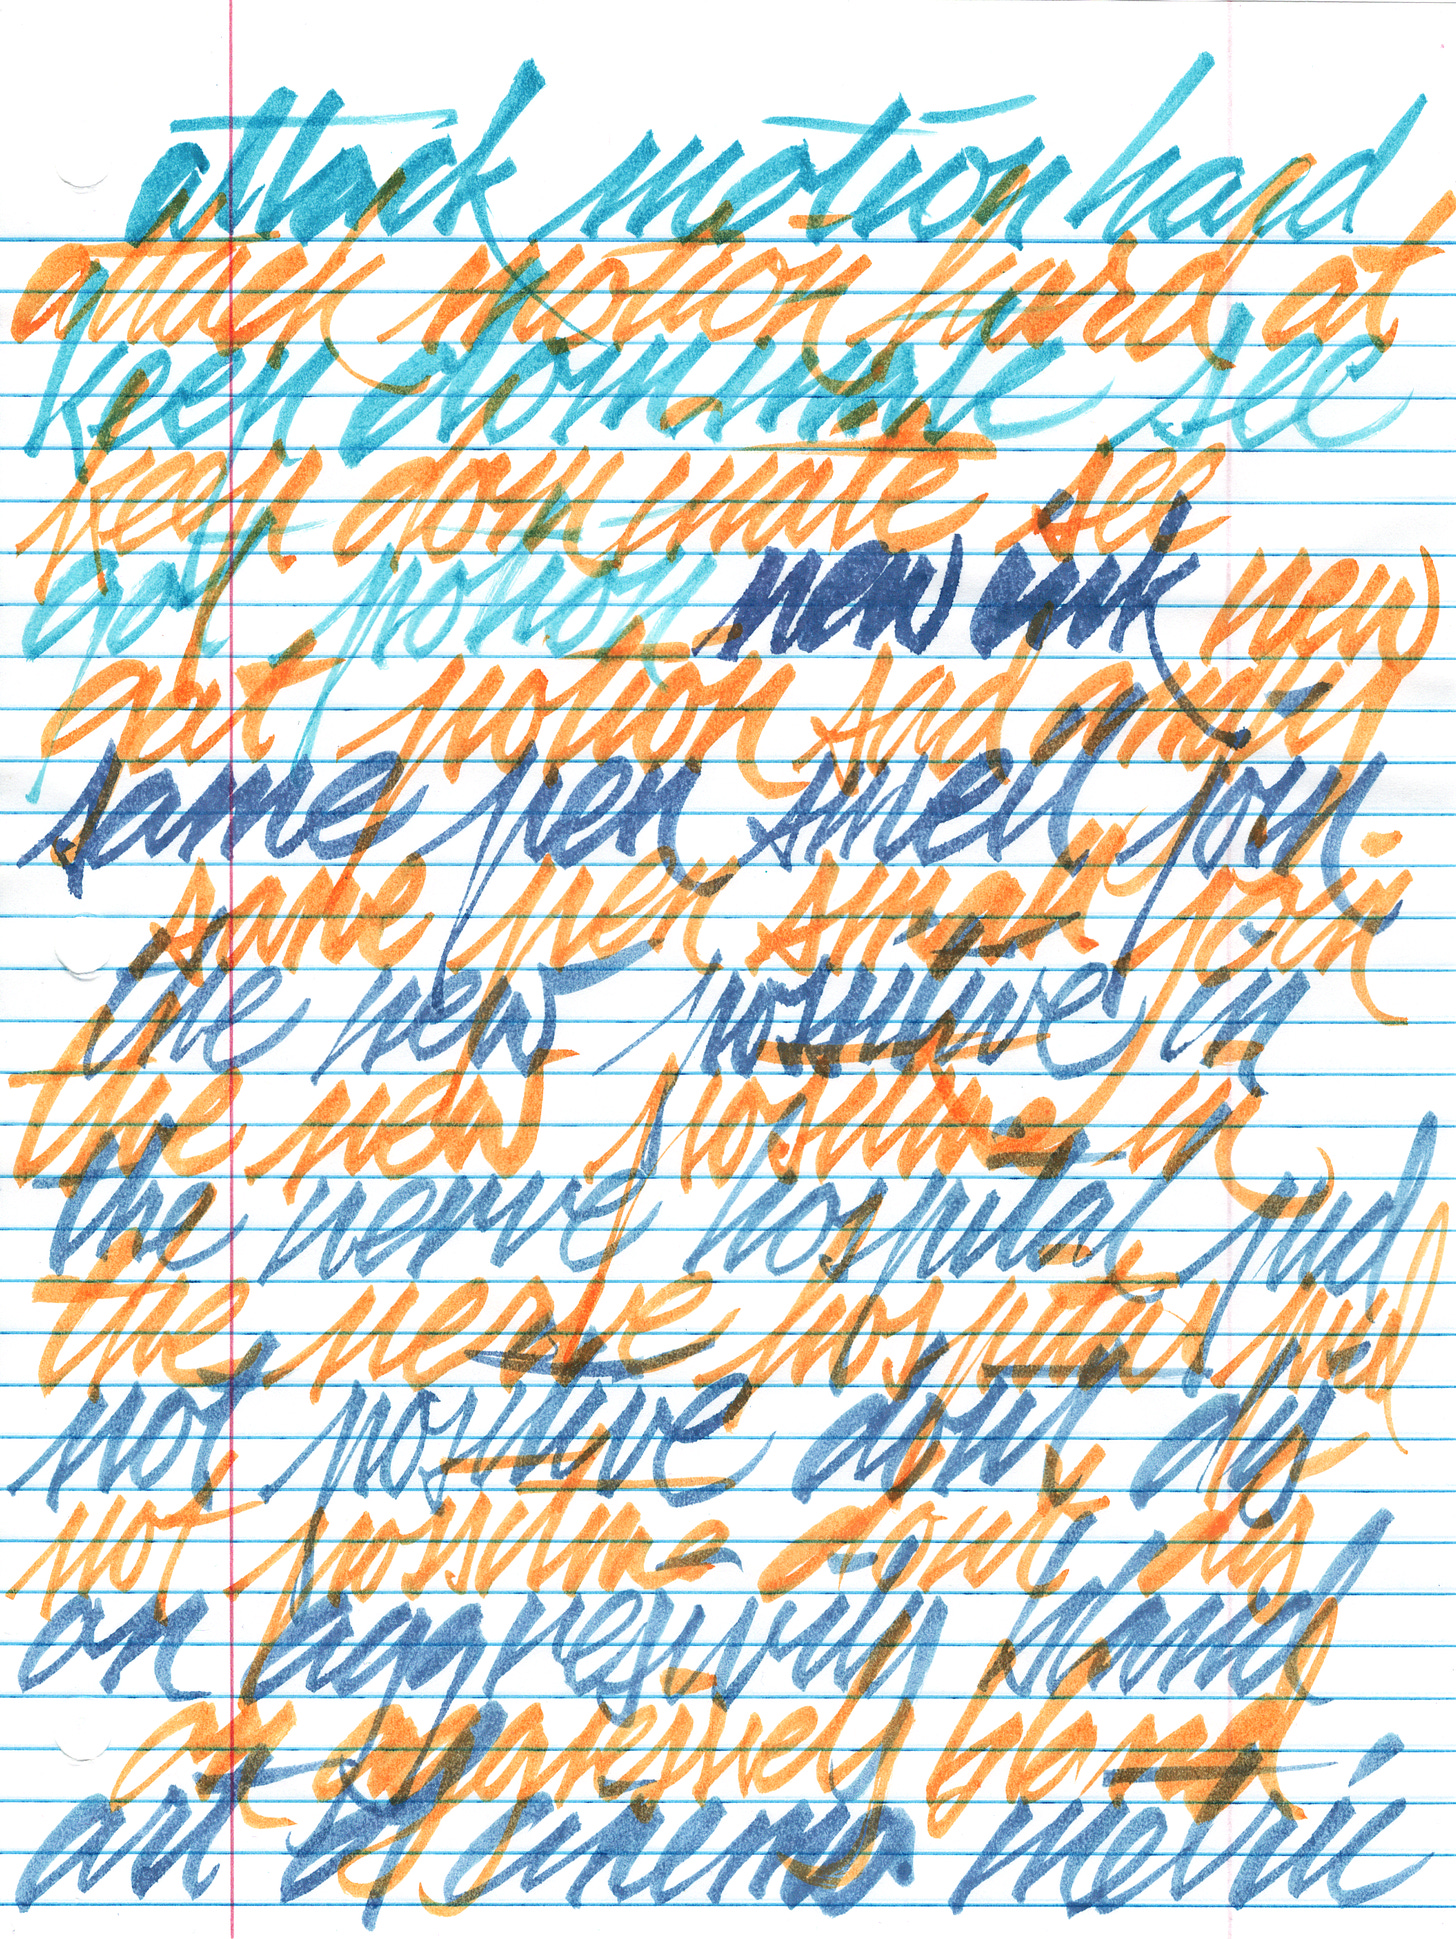 attack motion hard
attack motion hard at
keep dominate see
keep dominate see
got potion new ink new
potion sad
same pen smell join
same pen small join
the new positive in
the new in
the nerve hospital
the nerve hospital
not positive dont
not dont
an aggressively bland
an aggressively bland
art of cinema metric